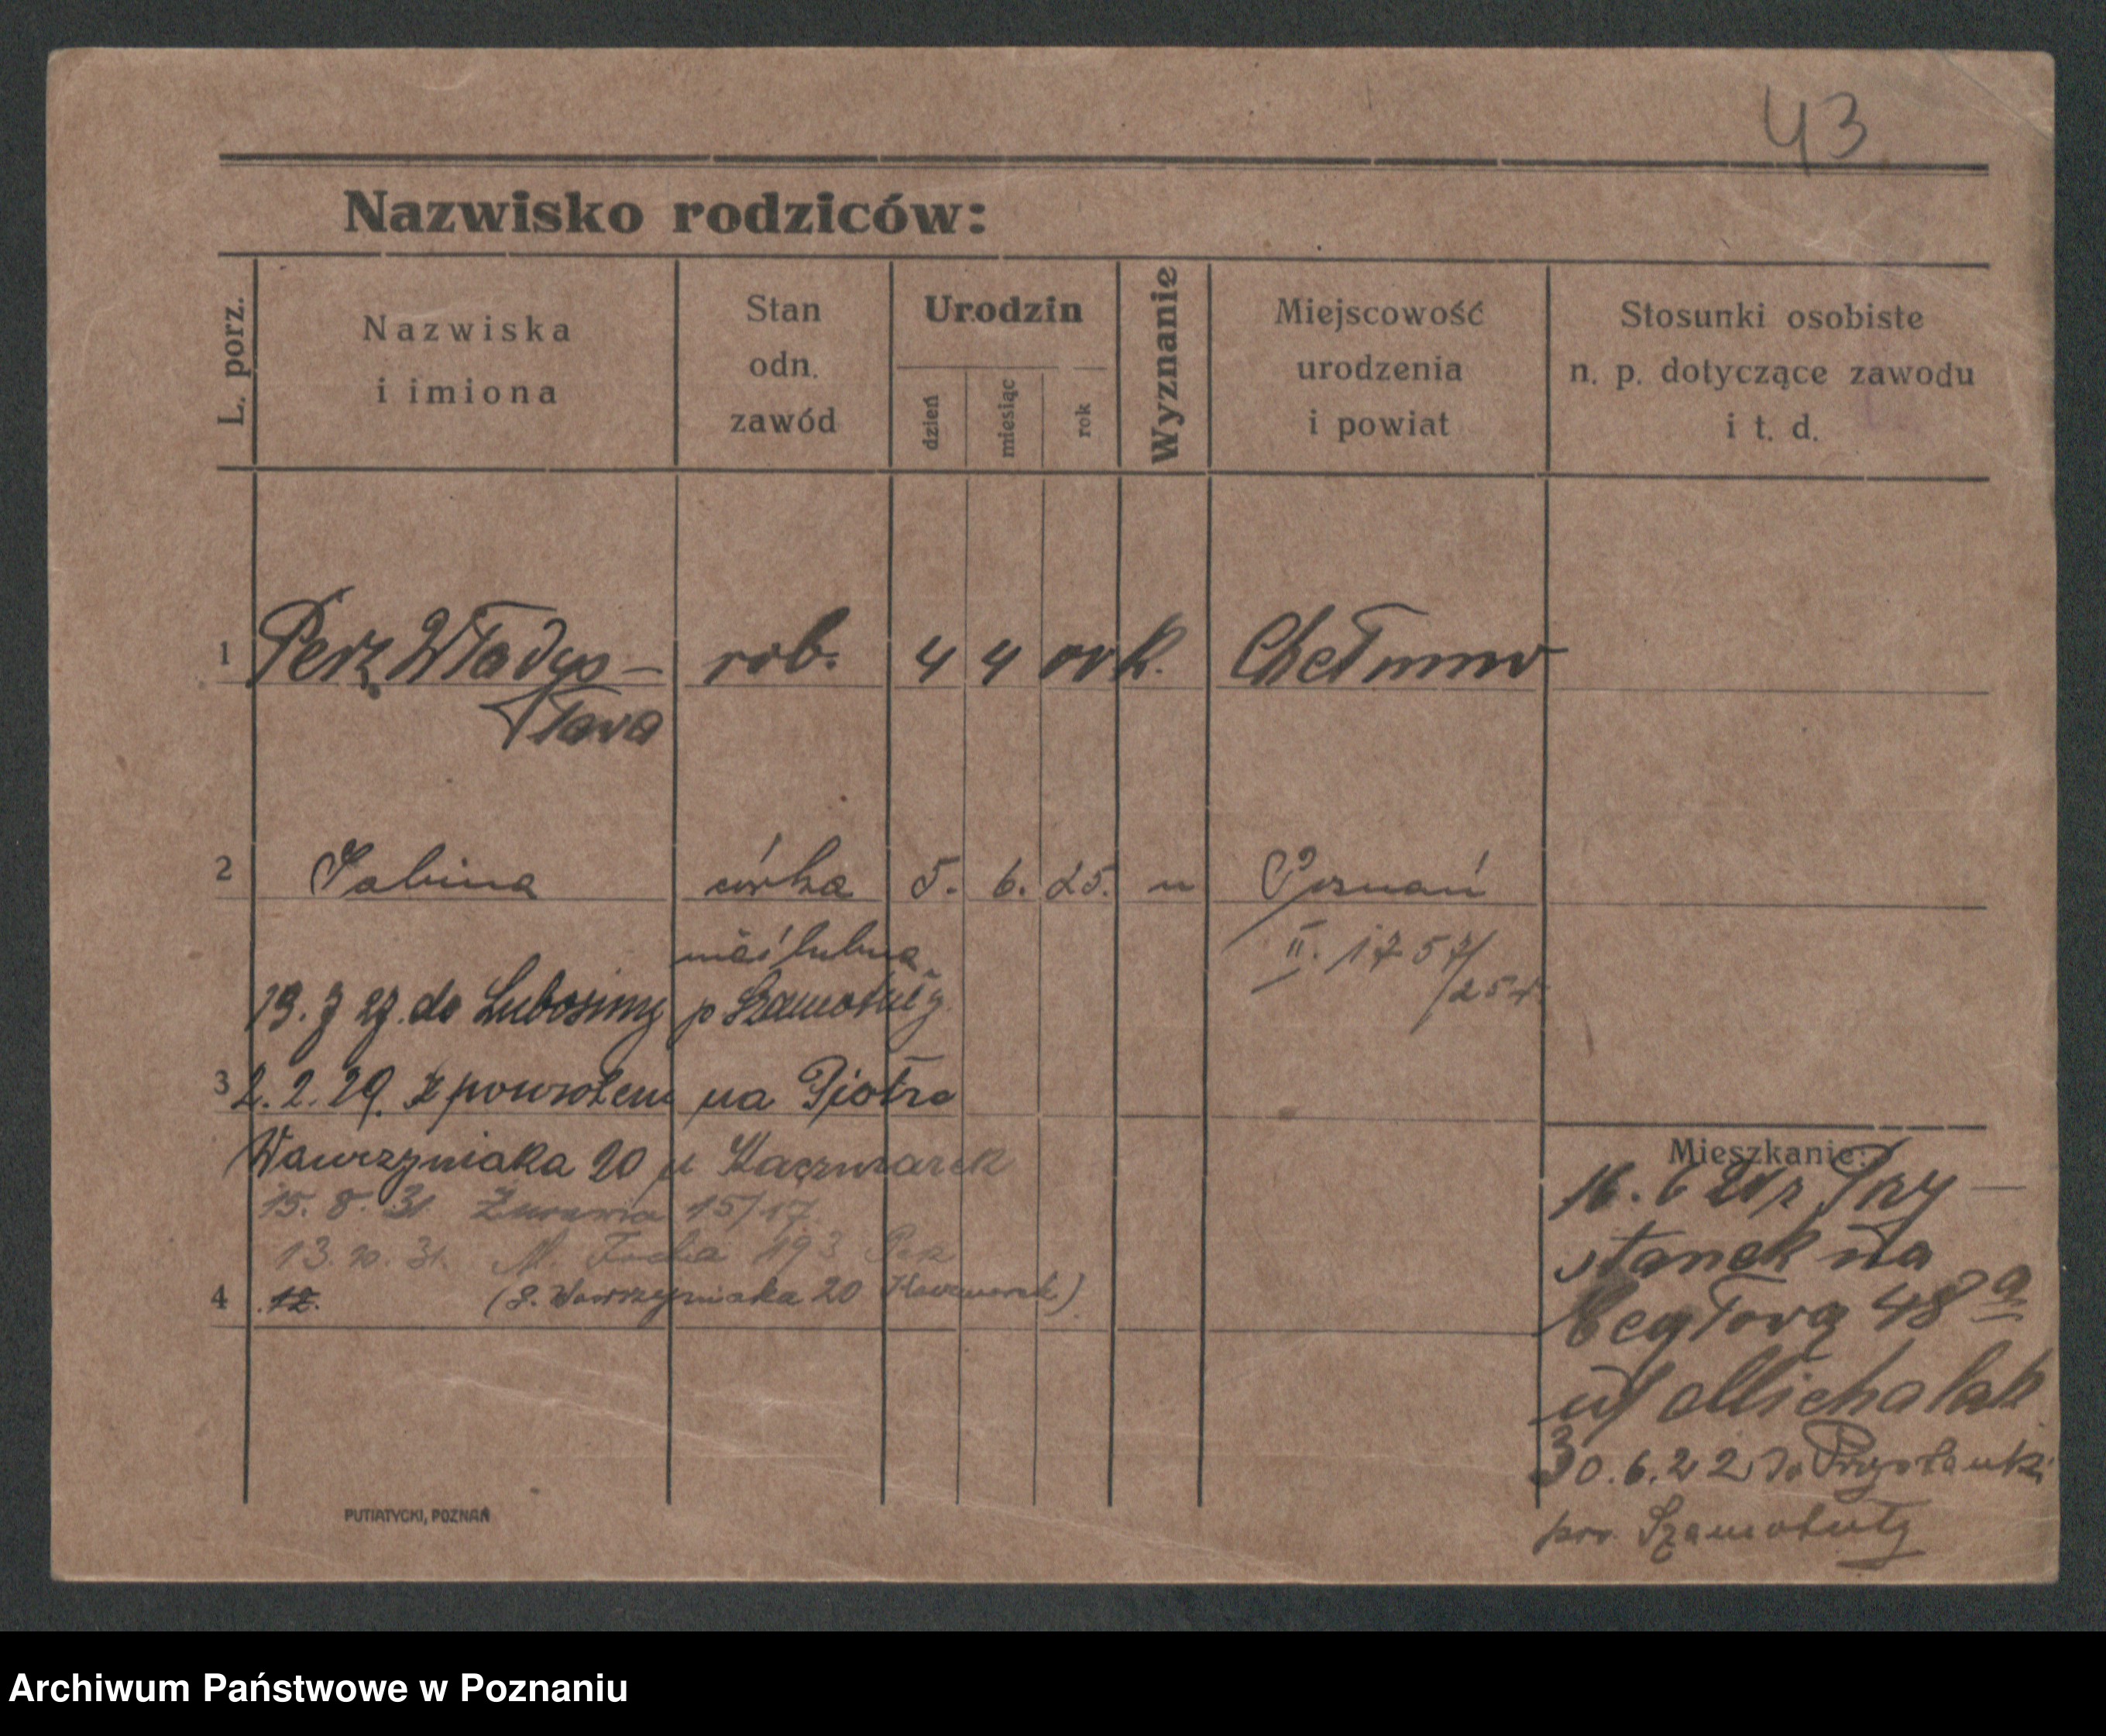 43
Nazwisko rodziców:
L. porz.
Nazwiska
i imiona
Stan
odn.
zawód
Urodzin
dzień
miesiąc
rok
Wyznanie
Miejscowość
urodzenia
i powiat
Stosunki osobiste
n. p. dotyczące zawodu
i t. d.
1 Perz Władys- rob. 4 4 k. Chełmno
ława
2 Sabina córka 5. 6. 25. Poznań
nieślubna
II. 1757/
19. 7 27. do Lubosiny p Szamotuły
3 2. 2. 29. z powrotem na Piotra
Wawrzyniaka 20 u Kaczmarek
15. 8. 31 Żurawia 15/17
13. 10. 31. M. Focha 193
4 12. (P. Wawrzyniaka 20 Kaczmarek)
Mieszkanie:
16. 6 Przy
stanek
48a
u/ Michalak
30. 6. 22 do Przystanki
pow. Szamotuły
PUTIATYCKI, POZNAŃ
Archiwum Państwowe w Poznaniu